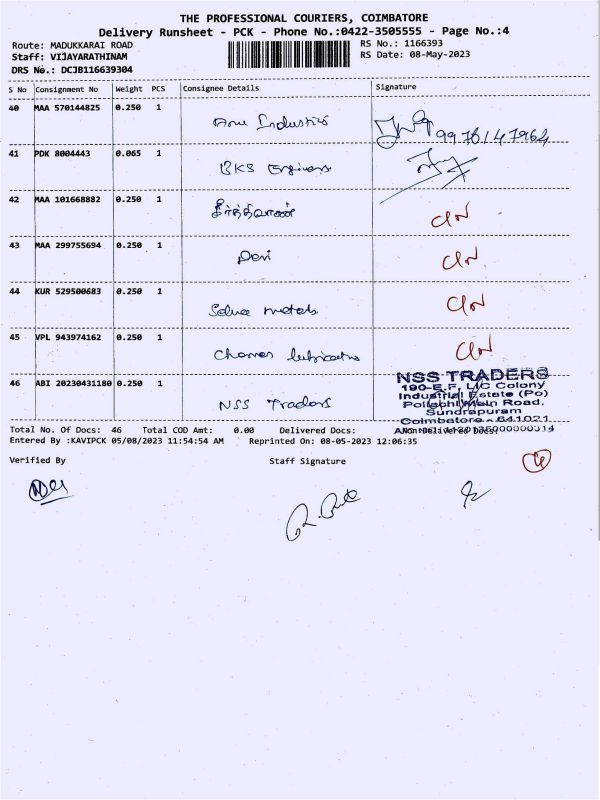 THE PROFESSIONAL COURIERS, COIMBATORE
Delivery Runsheet - PCK - Phone No.:0422-3505555 - Page No.:4
Route: MADUKKARAI ROAD
RS No.: 1166393
Staff: VIJAYARATHINAM
RS Date: 08-May-2023
DRS No.: DCJB116639304
S No Consignment No Weight PCS Consignee Details Signature
40 MAA 570144825 0.250 1 Industries 9976147964
41 PDK 8004443 0.065 1 BKS Engineers
42 MAA 101668882 0.250 1
43 MAA 299755694 0.250 1 Devi
44 KUR 529500683 0.250 1 metals
45 VPL 943974162 0.250 1
46 ABI 20230431180 0.250 1 NSS Traders
NSS TRADERS
190-E.F, LIC Colony
Industrial Estate (Po)
Pollachi Main Road,
Sundrapuram
Coimbatore - 641021
Total No. Of Docs: 46 Total COD Amt: 0.00 Delivered Docs:
Entered By :KAVIPCK 05/08/2023 11:54:54 AM Reprinted On: 08-05-2023 12:06:35
Verified By Staff Signature